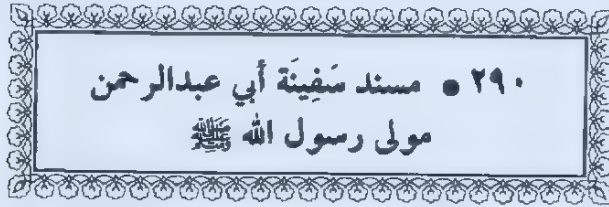 ٢٩٠ • مسند سَفِينَة أبي عبدالرحمن
مولى رسول الله ﷺ